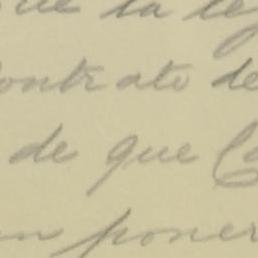 que la le
contrato de
de que C
en poner